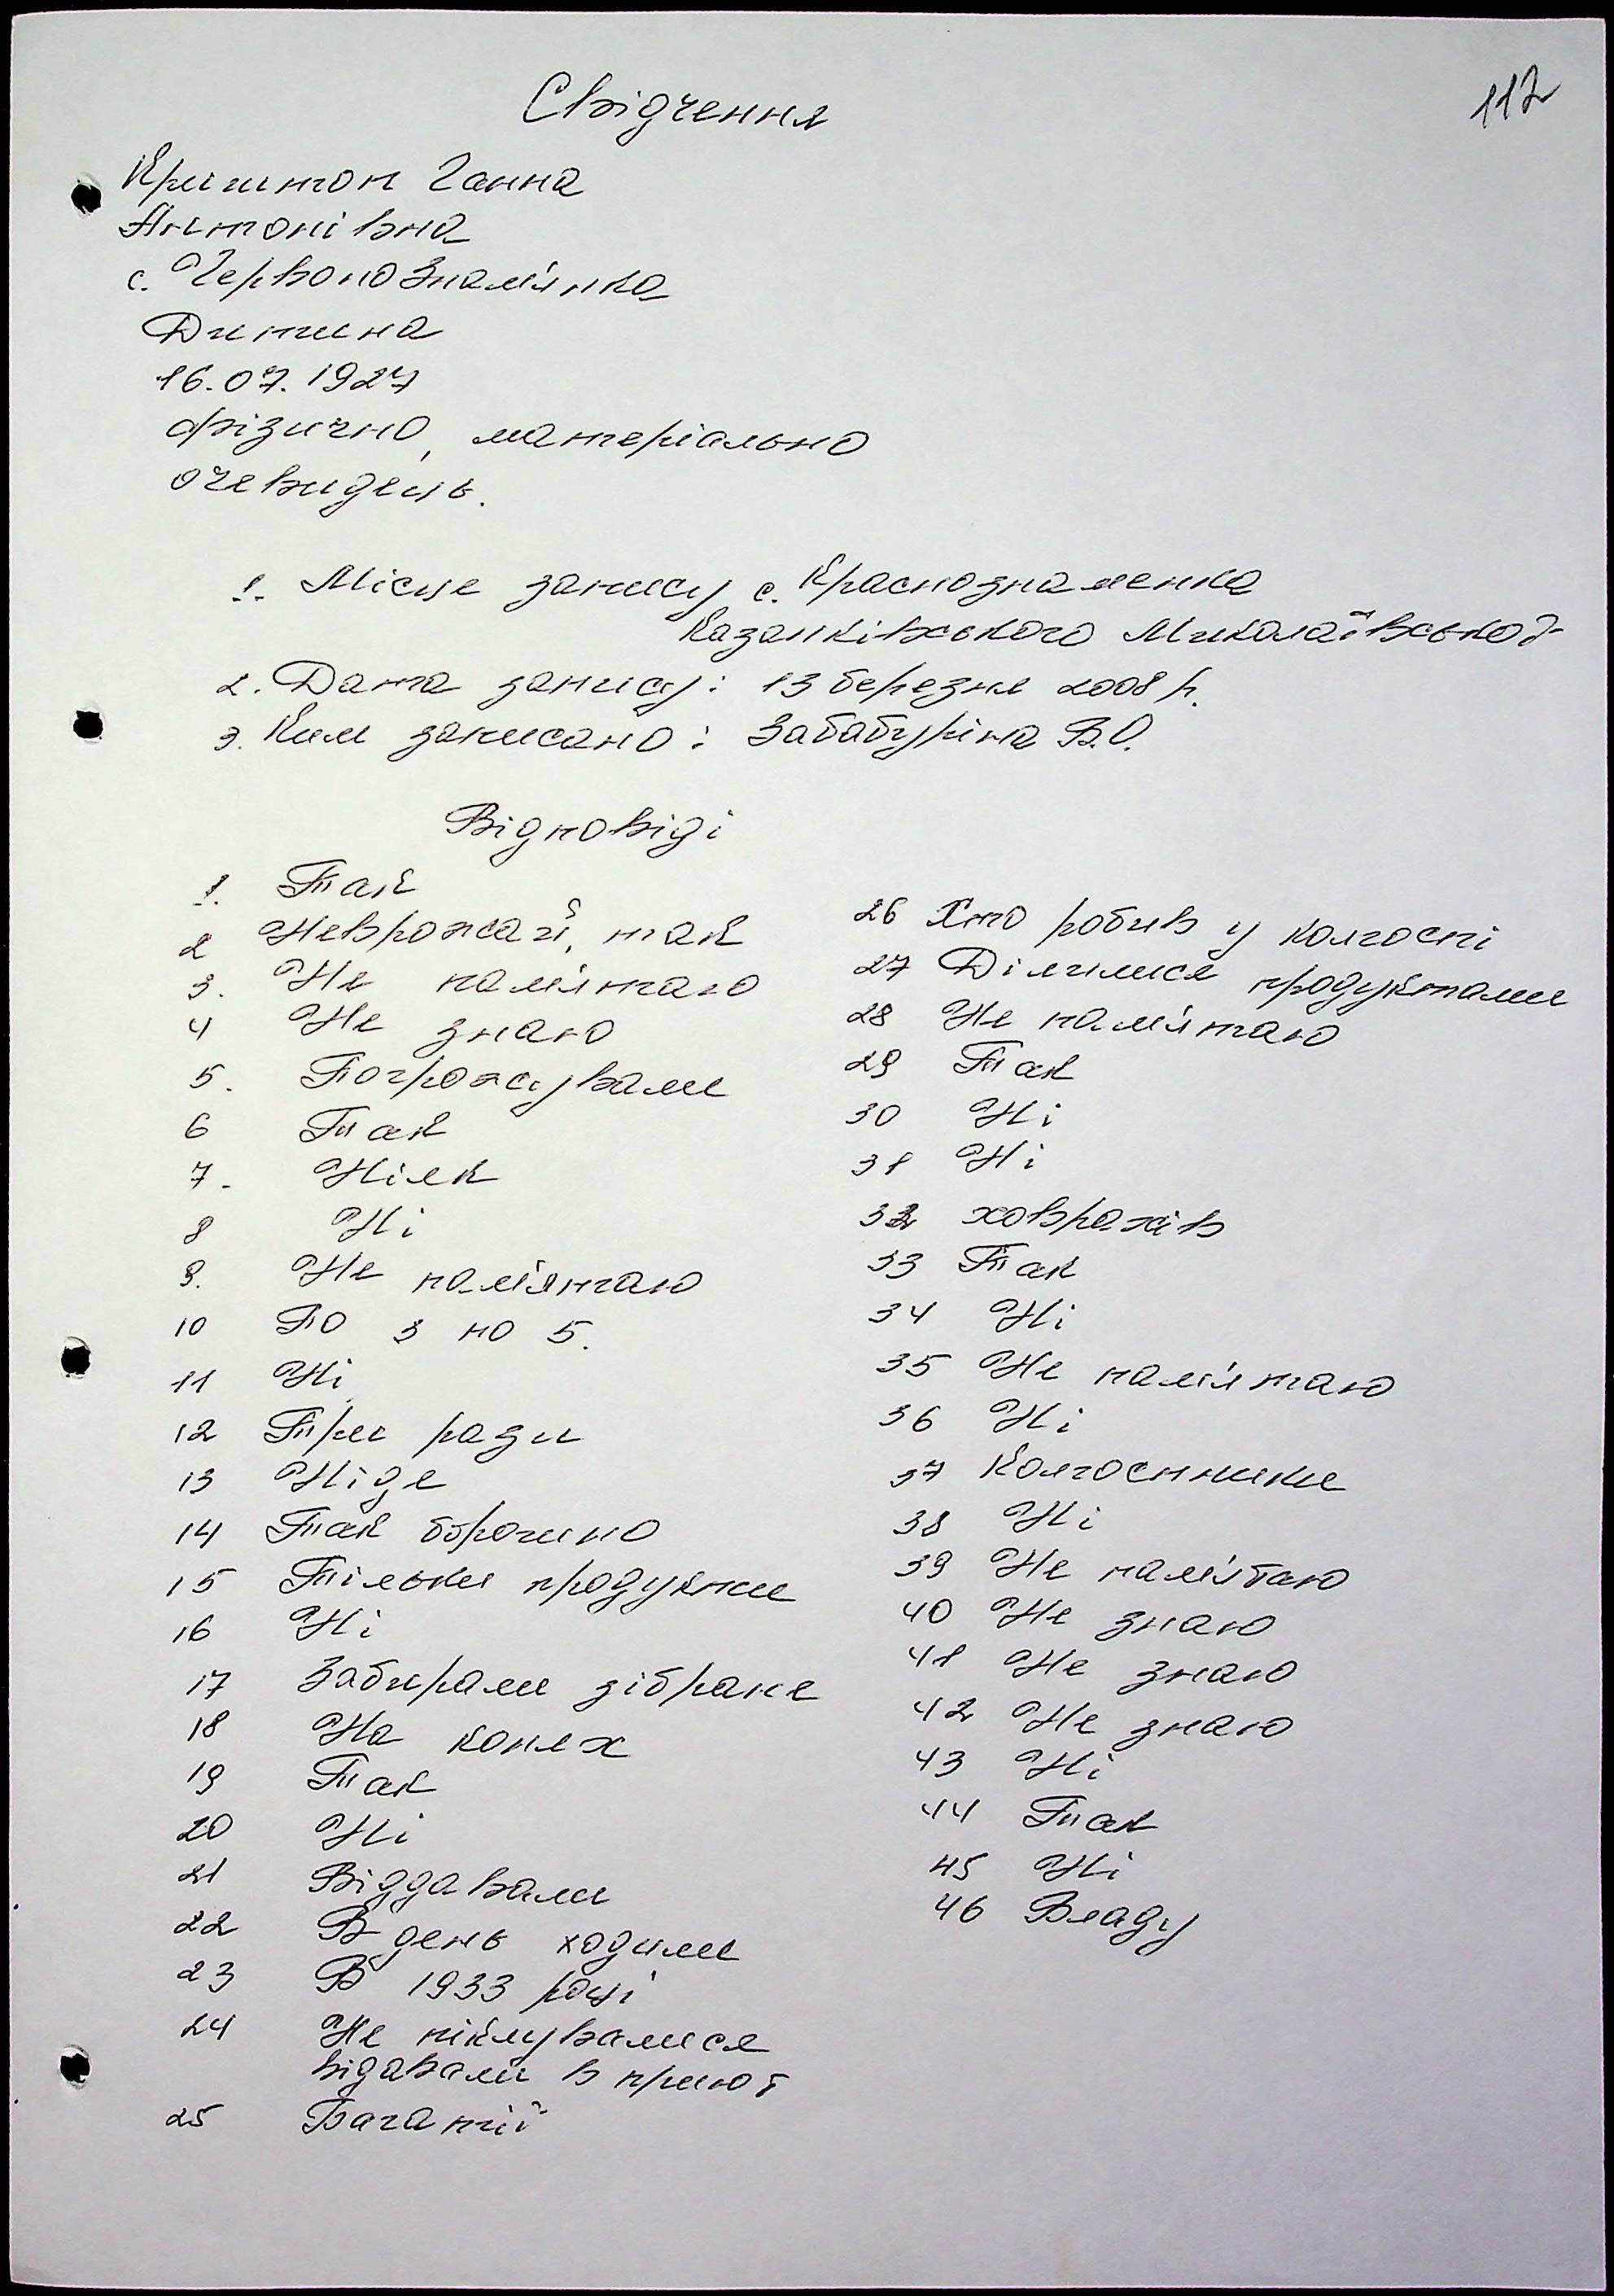 Свідчення
112
Криштоп Ганна
Антонівна
с. Червонознам'янка
Дитина
16.07.1927
фізично, матеріально
очевидець.
1. Місце запису с. Краснознаменка
Казанківського Миколаївської
2. Дата запису: 13 березня 2008 р.
3. Ким записано: Забабуріна В.О.
Відповіді
1. Так
2 Неврожай, так
3. Не пам'ятаю
4 Не знаю
5. Погрожували
6 Так
7. Ніяк
8 Ні
9. Не пам'ятаю
10 По 3 по 5.
11 Ні
12 Три рази
13 Ніде
14 Так борошно
15 Тільки продукти
16 Ні
17 Забирали зібране
18 На конях
19 Так
20 Ні
21 Віддавали
22 В день ходили
23 В 1933 році
24 Не піклувалися
відавали в приют
25 Багатії
26 Хто робив у колгоспі
27 Ділилися продуктами
28 Не пам'ятаю
29 Так
30 Ні
31 Ні
32 ховрахів
33 Так
34 Ні
35 Не пам'ятаю
36 Ні
37 Колгоспники
38 Ні
39 Не пам'ятаю
40 Не знаю
41 Не знаю
42 Не знаю
43 Ні
44 Так
45 Ні
46 Владу